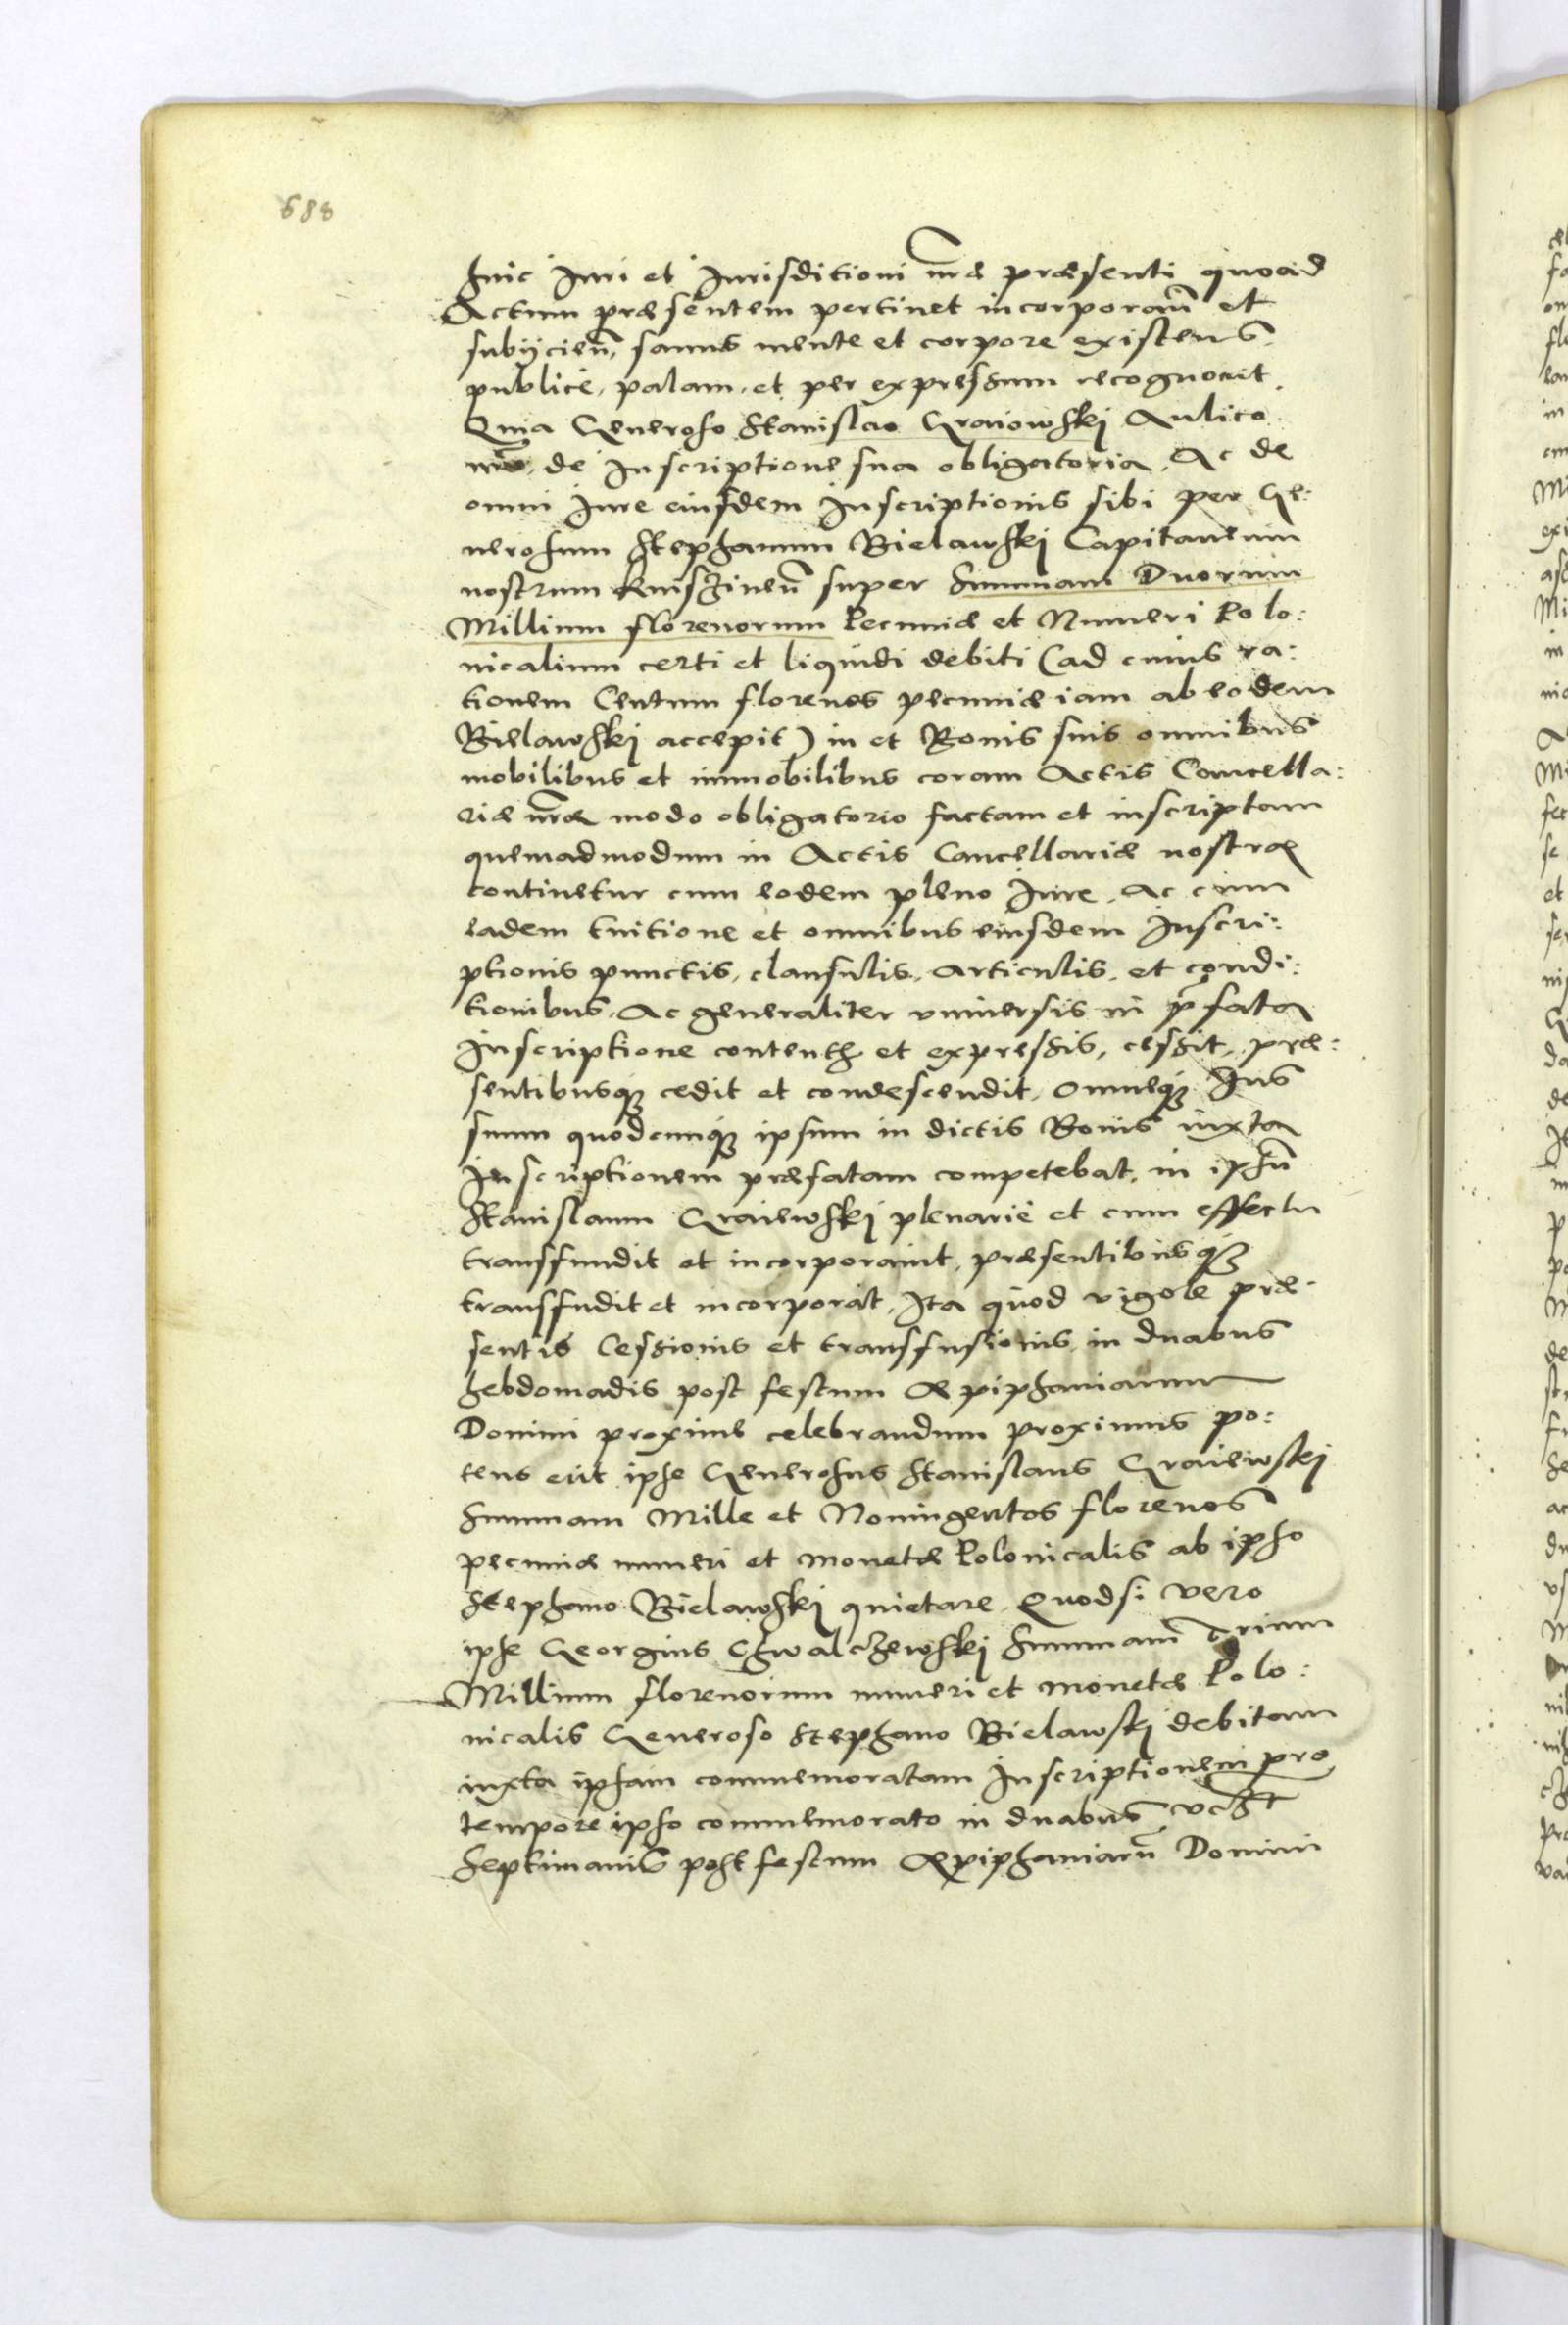 688
huic Iuri et Iurisditioni nr̃æ præsenti quoad
Actum præsentem pertinet incorporan̄ et
subijcien̄, sanus mente et corpore existens,
publicè, palam, et per expressum recognouit.
Quia Generoso Stanislao Graiowskj Aulico
nr̃o, de Inscriptione sua obligatoria, Ac de
omni Iure eiusdem Inscriptionis sibi per Ge:
nerosum Stephanum Bielawskj Capitaneum
nostrum Knisȝinen̄ super Summam Duorum
Millium florenorum Pecuniæ et Numeri Polo:
nicalium certi et liquidi debiti (ad cuius ra:
tionem Centum florenos pecuniæ iam ab eodem
Bielawskj accepit) in et Bonis suis omnibus
mobilibus et immobilibus coram Actis Cancella:
riæ nr̃æ modo obligatorio factam et inscriptam
quemadmodum in Actis Cancellariæ nostræ
continetur cum eodem pleno Iure, Ac cum
eadem tuitione et omnibus eiusdem Inscri:
ptionis punctis, clausulis, articulis, et condi:
tionibus, Ac generaliter vniuersis in p̄fata
Inscriptione contentis et expressis, cessit, præ:
sentibusq; cedit et condescendit, Omneq; Ius
suum quodcunq; ipsum in dictis Bonis iuxta
Inscriptionem præfatam competebat, in ipsũ
Stanislaum Graiewskj plenariè et cum effectu
transfundit et incorporauit, præsentibusq;
transfudit et incorporat, Ita quod vigore præ:
sentis Cessionis et transfusionis in duabus
hebdomadis post festum Æpiphaniarum
Domini proxime celebrandum proximus po:
tens erit ipse Generosus Stanislaus Graiewskj
Summam Mille et Noningentos florenos
pecuniæ numeri et monetæ Polonicalis ab ipso
Stephano Bielawskj quietare. Quodsi vero
ipse Georgius Chwalcȝewskj Summam trium
Millium florenorum numeri et monetæ Polo:
nicalis Generoso Stephano Bielawskj debitam
iuxta ipsam commemoratam Inscriptionem pro
tempore ipso commemorato in duabus
Septimanis post festum Æpiphaniarũ Domini